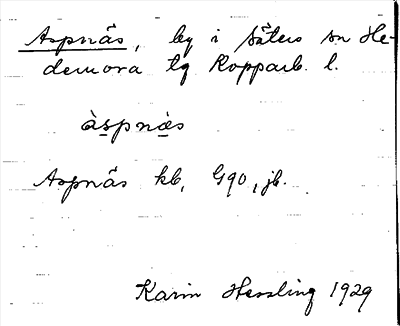 Aspnäs, by i Säters sn He-
demora tg Kopparb. l.
àspnæs
Aspnäs kb, G90, jb.
Karin Hessling 1929